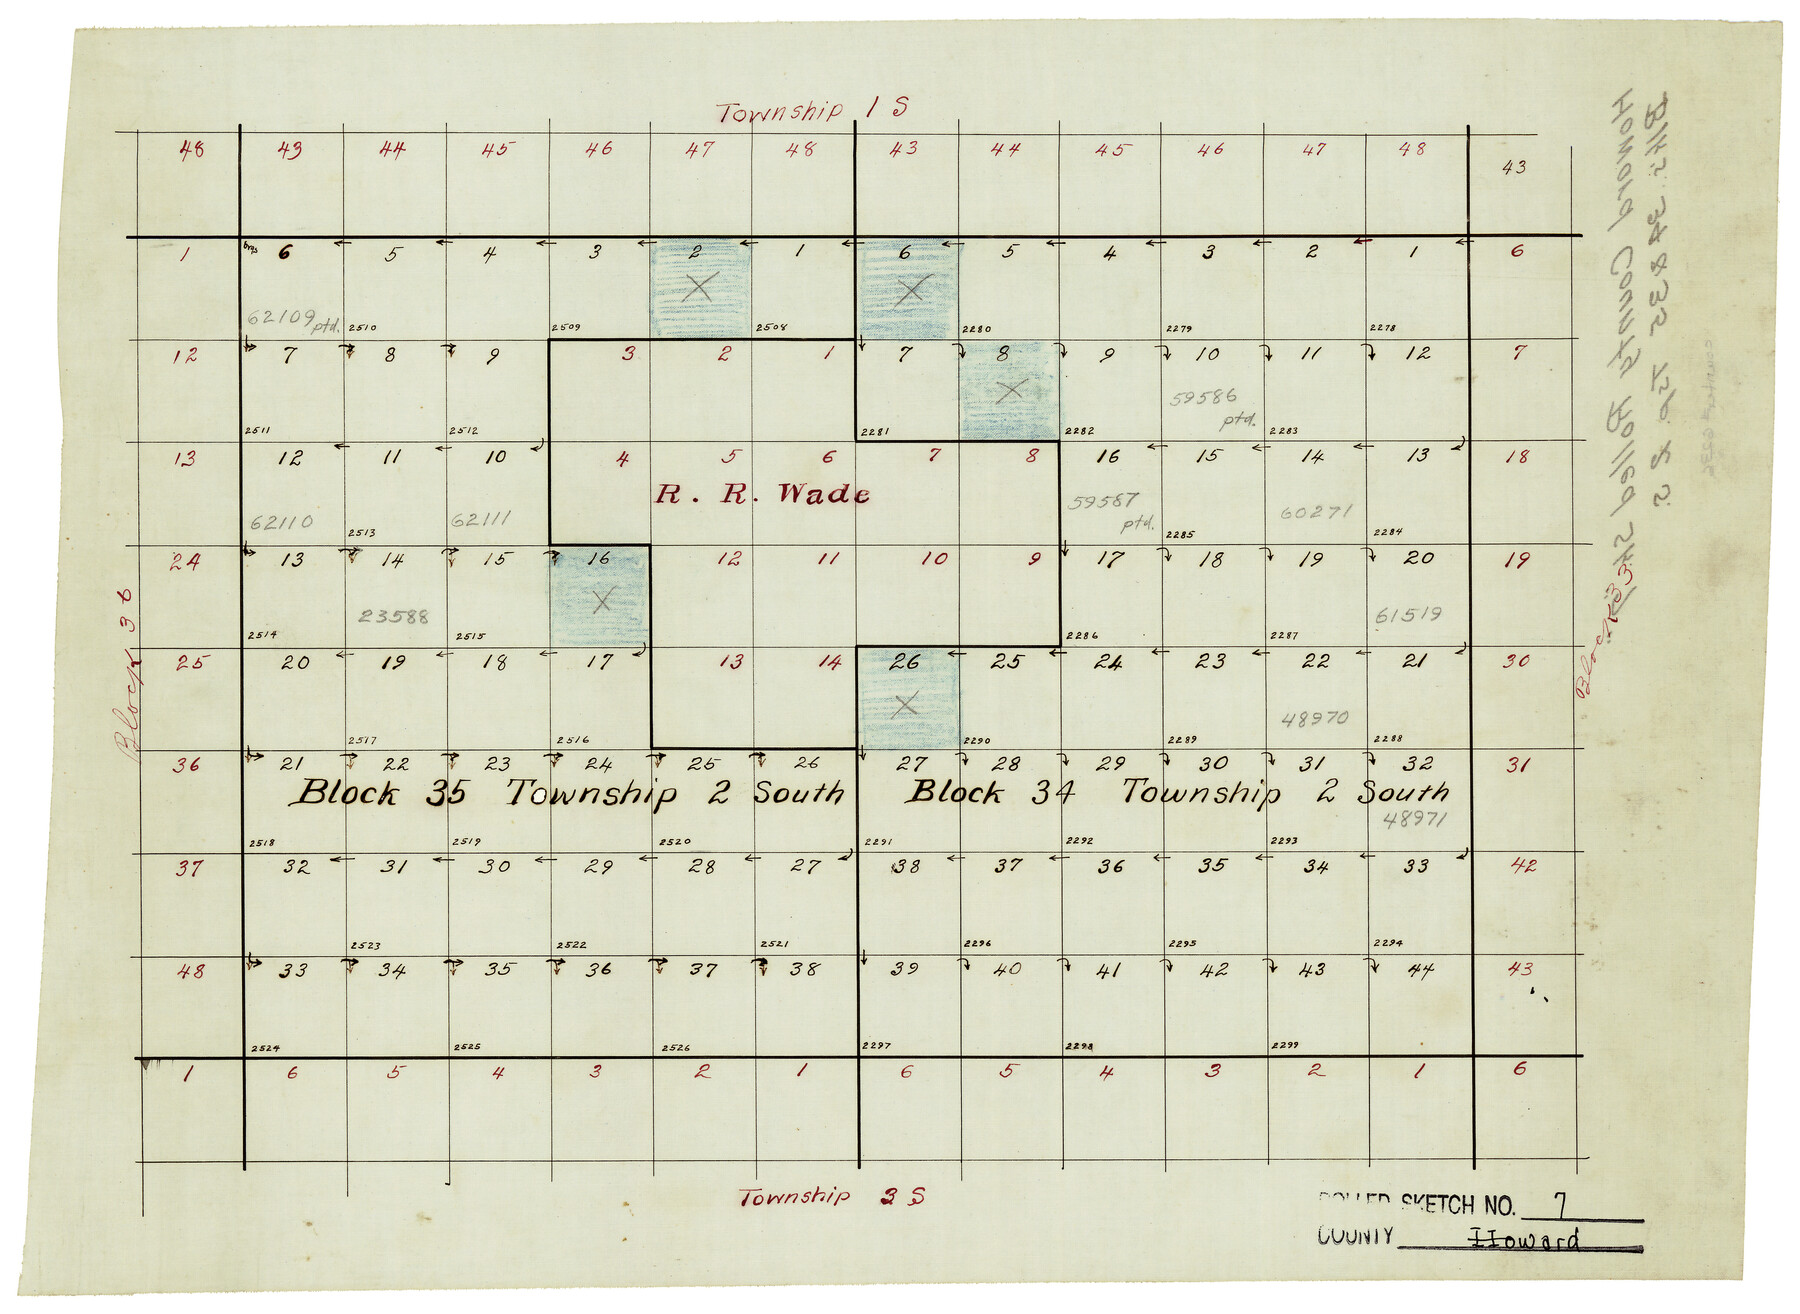 Township 1 S
48 43 44 45 46 47 48 43 44 45 46 47 48 43
1 6 5 4 3 2 1 6 5 4 3 2 1 6
X X
62109 ptd.
2510 2509 2508 2280 2279 2278
12 7 8 9 3 2 1 7 8 9 10 11 12 7
X
59586
ptd.
2511 2512 2281 2282 2283
13 12 11 10 4 5 6 7 8 16 15 14 13 18
R. R. Wade
62110 62111 59587 ptd. 60271
2513 2285 2284
24 13 14 15 16 12 11 10 9 17 18 19 20 19
X
23588 61519
2514 2515 2286 2287
25 20 19 18 17 13 14 26 25 24 23 22 21 30
X
48970
2517 2516 2290 2289 2288
36 21 22 23 24 25 26 27 28 29 30 31 32 31
Block 35 Township 2 South Block 34 Township 2 South
48971
2518 2519 2520 2291 2292 2293
37 32 31 30 29 28 27 38 37 36 35 34 33 42
2523 2522 2521 2296 2295 2294
48 33 34 35 36 37 38 39 40 41 42 43 44 43
2524 2525 2526 2297 2298 2299
1 6 5 4 3 2 1 6 5 4 3 2 1 6
Township 3 S
Block 36
Block 33
Howard County Rolled Sk
Blks. 34 & 35 Tp. 2 S.
ROLLED SKETCH NO. 7
COUNTY Howard